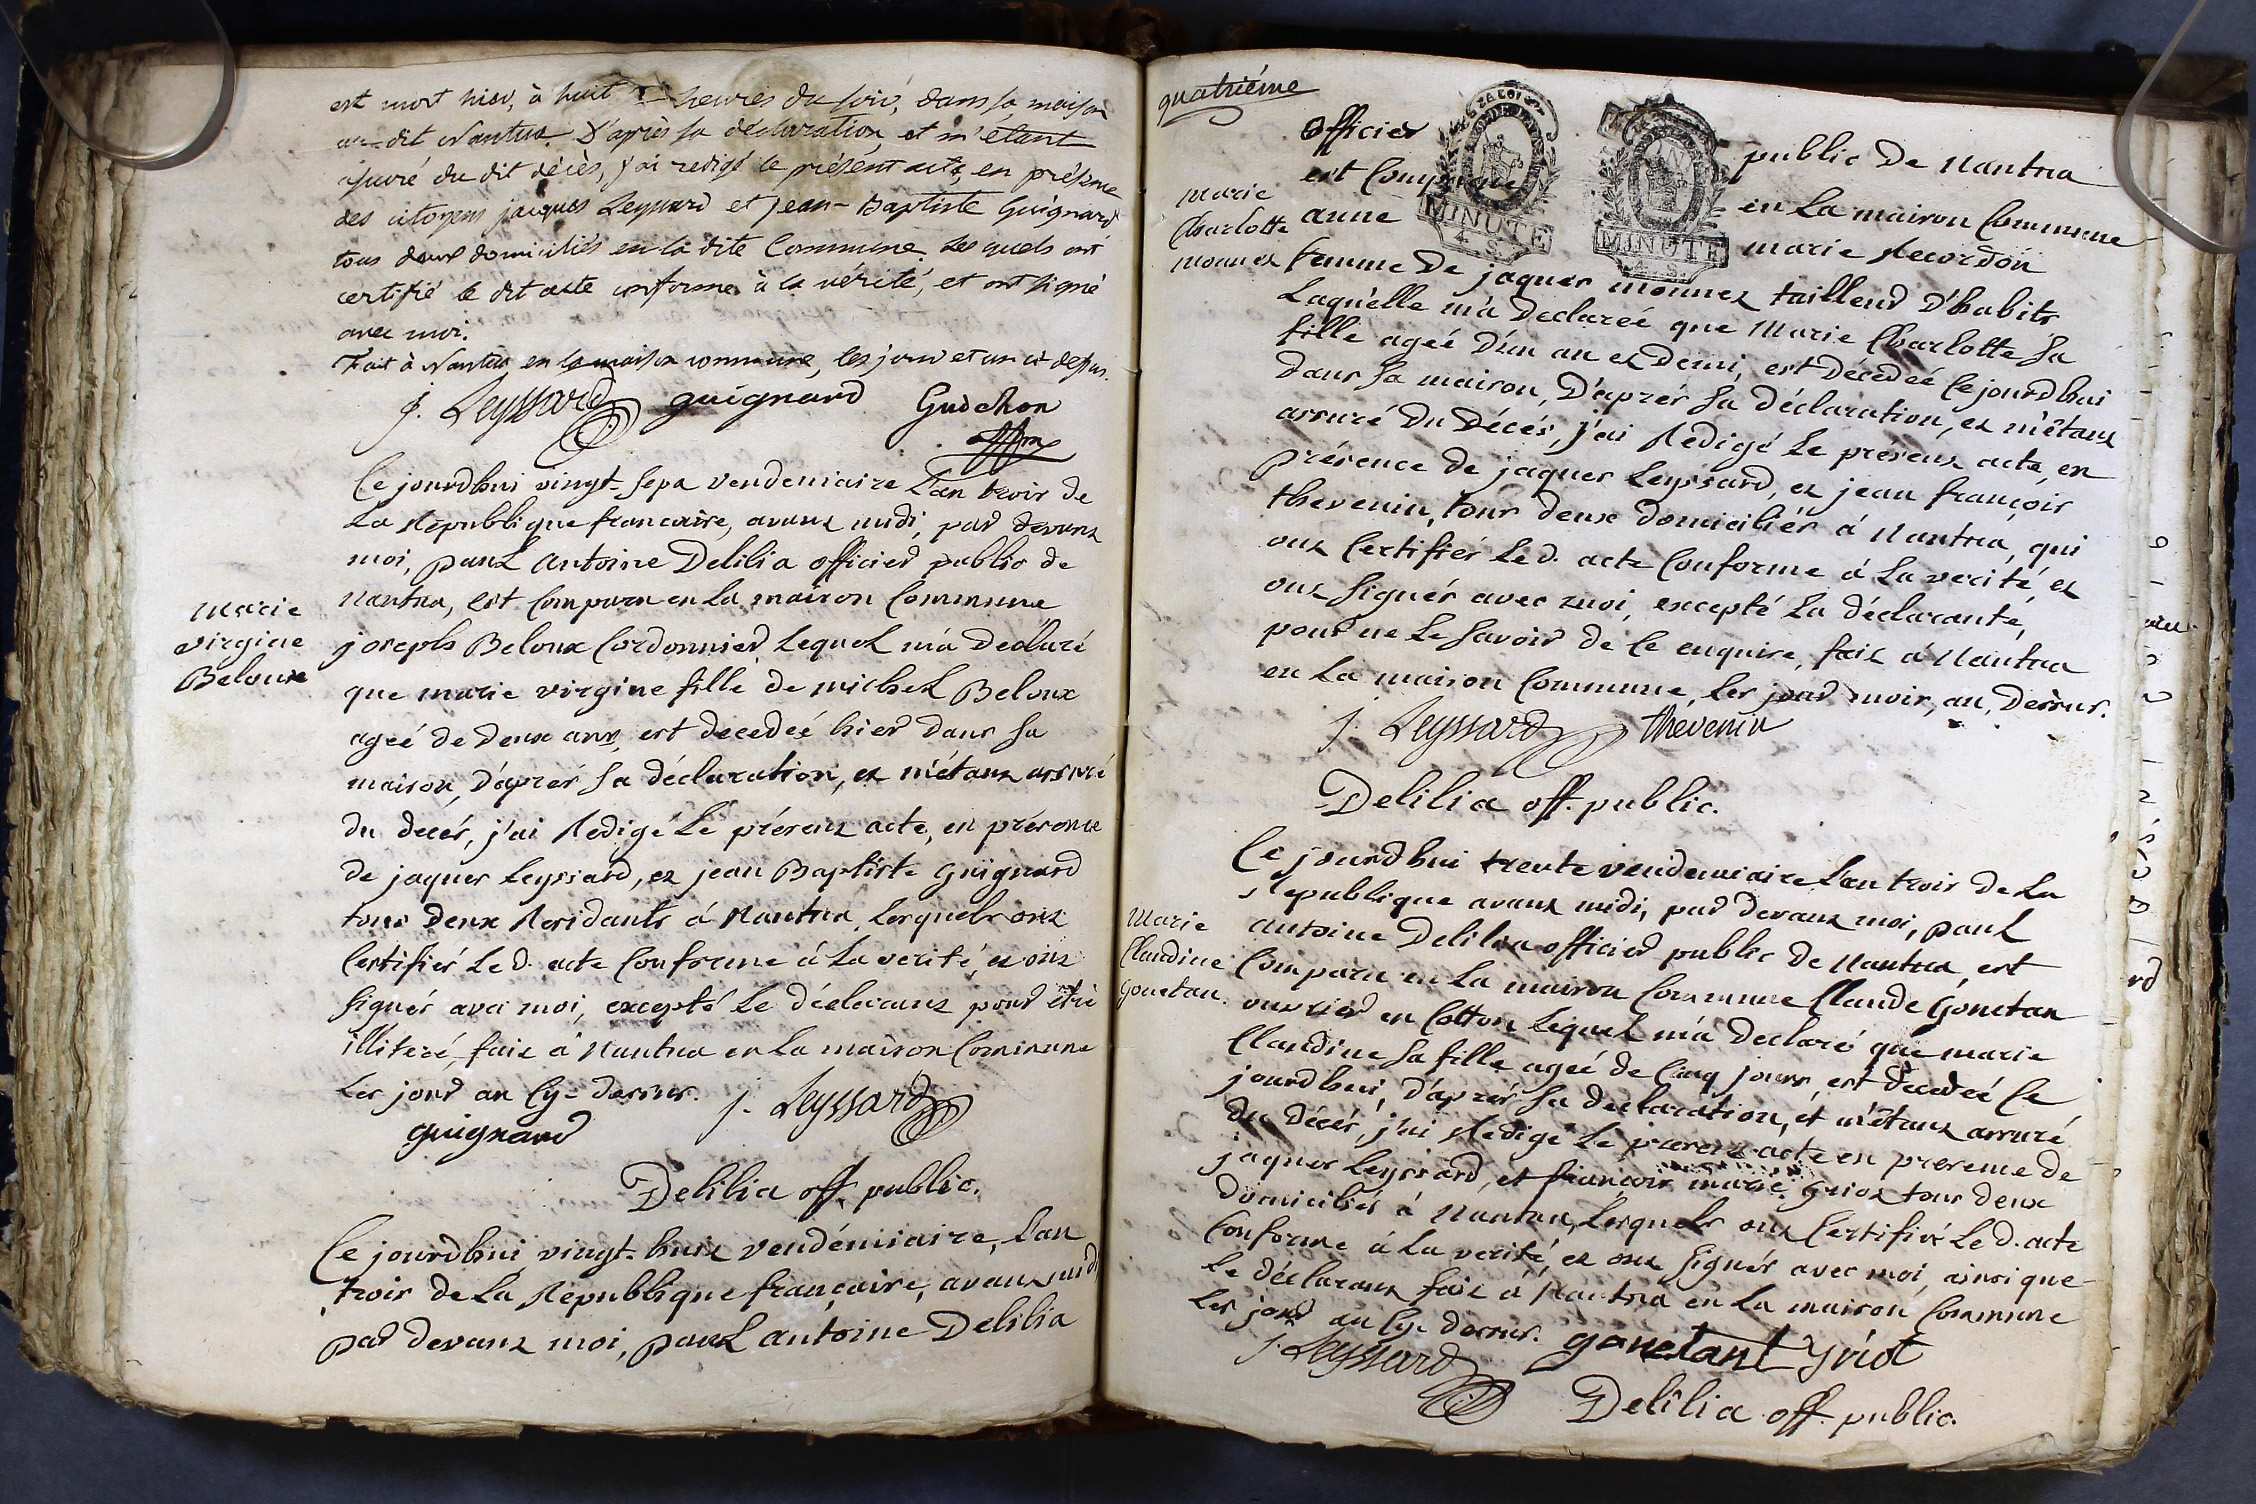 est mort hier, à huit heures du soir, dans sa maison
au-dit Nantua. D'après sa déclaration et m'étant
assuré du dit décès, j'ai redigé le présent acte, en présence
des citoyens jacques Leyssard et jean-Baptiste Guignard
tous deux domiciliés en la dite Commune. Les quels ont
certifié le dit acte conforme à la vérité, et ont signé
avec moi.
Fait à Nantua en la maison commune, les jour et an ci dessus.
j. Leyssard guignard Gudchon
offm
Ce jourdhui vingt-sept vendemiaire L'an trois de
La Republique francaise, avant midi, par devant
moi, paul Antoine Delilia officier public de
Nantua, est Comparu en La maison Commune
joseph Beloux Cordonnier Lequel m'a Declaré
que marie virgine fille de michel Beloux
ageé de deux ans, est decedeé hier dans sa
maison, D'aprés sa déclaration, et m'étant assuré
du decés, j'ai Redigé Le présent acte, en présence
de jaques Leyssard, et jean Baptiste Guignard
tous deux Residants á Nantua, Lesquels ont
Certifiés Le d. acte Conforme á La verité, et ont
signés avec moi, excepté Le déclarant pour être
illiteré, fait á Nantua en La maison Commune
Les jour an Cy-dessus. j. Leyssard
guignard
Delilia off. public.
Ce jourdhui vingt-huit vendémiaire, L'an
trois de La Republique française, avant midi
par devant moi, paul antoine Delilia
Marie
virgine
Beloux
quatriéme
officier public de Nantua
est Comparue en La maison Commune
anne marie Recordon
MINUTE
4. S.
MINUTE
4. S.
femme de jaques monnet tailleur d'habits
Laquelle m'a Declareé que Marie Charlotte sa
fille ageé d'un an et Demi, est Décedeé Cejourdhui
dans sa maison, D'aprés sa déclaration, et m'étant
assuré Du Décés, j'ai Redigé Le présent acte, en
présence de jaques Leyssard, et jean françois
thevenin, tous deux domiciliés á Nantua, qui
ont Certifiés Le d. acte Conforme á La verité, et
ont signés avec moi, excepté La déclarante,
pour ne Le savoir de Ce enquise, fait á Nantua
en La maison Commune, Les jour mois, an, Dessus.
j. Leyssard thevenin
Delilia off. public.
marie
Charlotte
monnet
Ce jourdhui trente vendemiaire L'an trois de La
Republique avant midi, par devant moi, paul
antoine Delilia officier public de Nantua, est
Comparu en La maison Commune Claude Gonetan
ouvrier en Cotton Lequel m'a Declaré que marie
Claudine sa fille ageé de Cinq jours, est décedeé Ce
jourdhui, d'aprés sa declaration, et m'étant assuré
du Décés, j'ai Redigé Le present acte en presence de
jaques Leyssard, et françois marie griot tous deux
domiciliés á Nantua, Lesquels ont Certifiés Le d. acte
Conforme á La verité, et ont signés avec moi, ainsi que
Le déclarant fait á Nantua en La maison Commune
Les jour an Cy-dessus. gonetant griot
j. Leyssard
Delilia off. public.
Marie
Claudine
Gonetan.